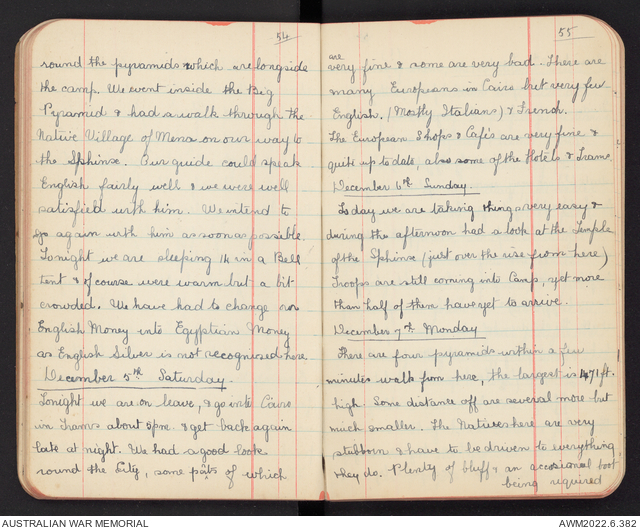 54
round the pyramids which are longside
the camp. We went inside the Big
Pyramid & had a walk through the
Native Village of Mena on our way to
the Sphinse. Our guide could speak
English fairly well & we were well
satisfied with him. We intend to
go again with him as soon as possible.
Tonight we are sleeping 14 in a Bell
tent & of course were warm but a bit
crowded. We have had to change our
English Money into Egyptian Money
as English Silver is not recognised here.
December 5th Saturday.
Tonight we are on leave, & go into Cairo
in Trams about 5pm & get back again
late at night. We had a good look
round the City, some pats of which
55
are
very fine & some are very bad. There are
many Europeans in Cairo but very few
English. (Mostly Italians) & French.
The European Shops & Cafis are very fine &
quite up to date, also some of the Hotels & Trams.
December 6th Sunday.
Today we are taking things very easy &
during the afternoon had a look at the Temple
of the Sphinse (just over the rise from here)
Troops are still coming into Camp, yet more
than half of them have yet to arrive.
December 7th Monday
There are four pyramids within a few
minutes walk from here, the largest is 471 ft.
high. Some distance off are several more but
much smaller. The Natives here are very
stubborn & have to be driven to everything
they do. Plenty of bluff & an accosional boot
being required
AUSTRALIAN WAR MEMORIAL
AWM2022.6.382